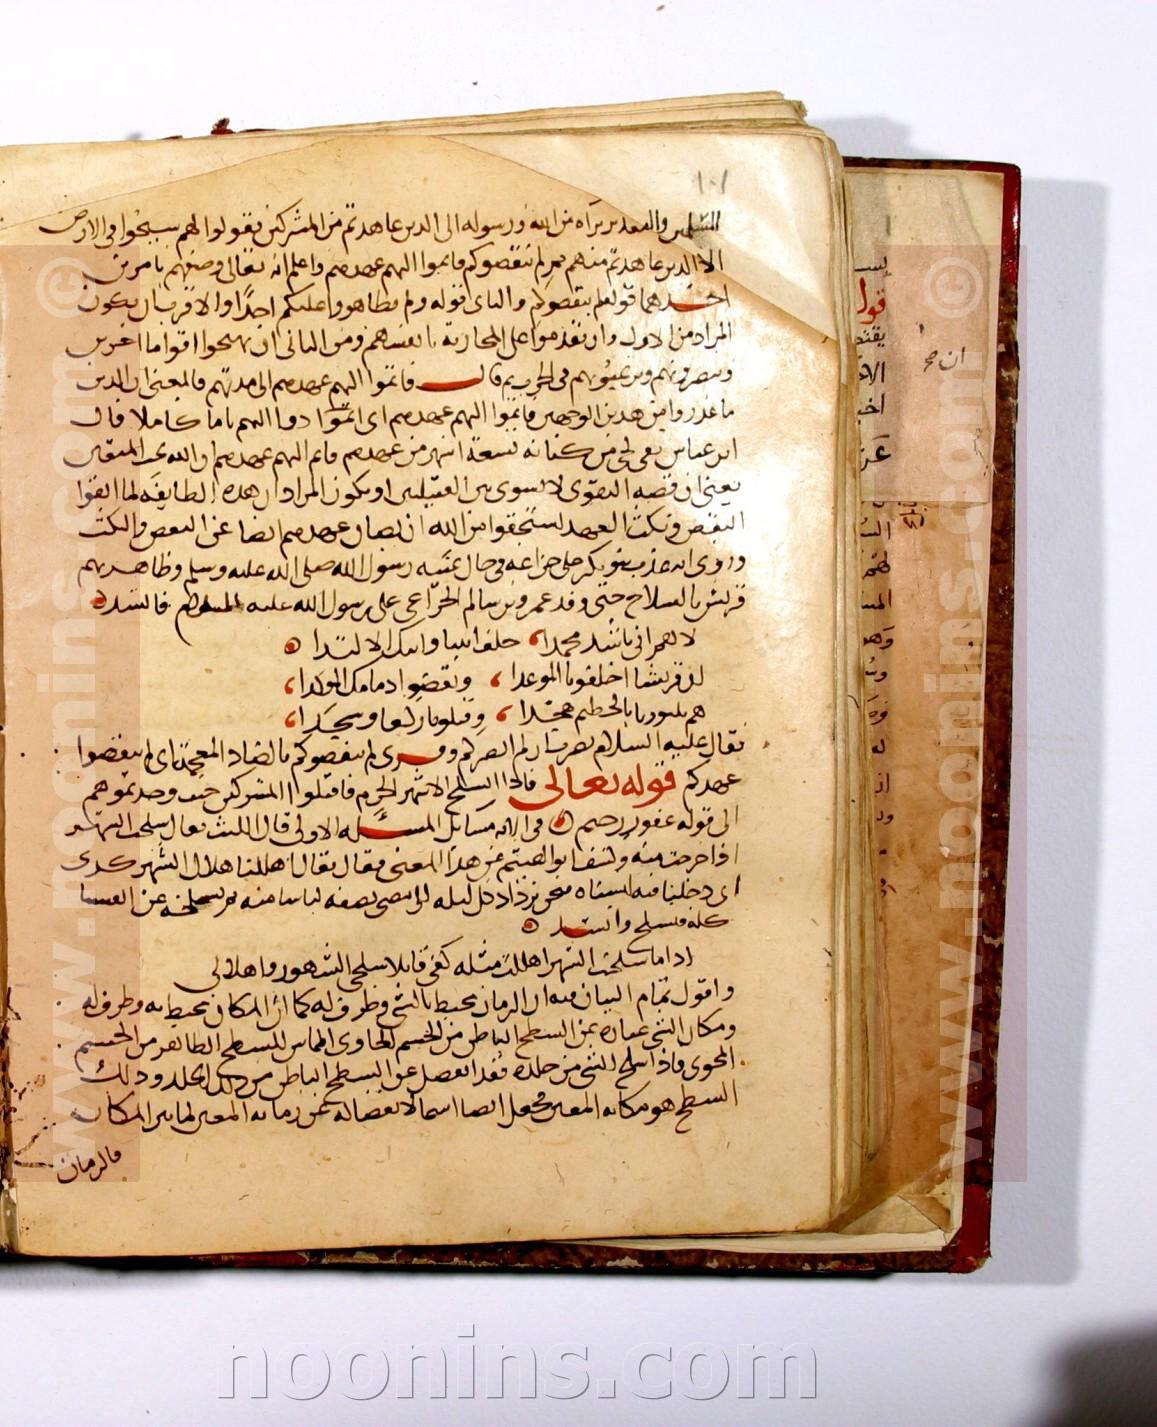 ١٠١
المسلمين والتقدير براءة من الله ورسوله الى الدين عاهدتم من المشركين فقولوا لهم سيحوا في الارض
الا الدين عاهدتم منهم ثم لم ينقصوكم فاتموا اليهم عهدهم واعلم انه تعالى وصفهم بامرين
احدهما قوله لم ينقصوكم والثاني قوله ولم يظاهروا عليكم احدا والاقرب ان يكون
المراد من الاول ان يقدموا على المحاربة بانفسهم ومن الثاني ان يهيجوا اقواما اخرين
وينصرونهم ويرغبونهم في الحرب ثم قال فاتموا اليهم عهدهم الى مدتهم والمعنى ان الدين
ما غدروا من هذين الوجهين فاتموا اليهم عهدهم اى ادوا اليهم تاما كاملا قال
ابن عباس بقى لحى من كنانه تسعة اشهر من عهدهم فاتم اليهم عهدهم ان الله يحب المتقين
يعنى ان قضية التقوى لا تسوى بين القبيلين او يكون المراد ان هذه الطايفة لما اتقوا
النقض ونكث العهد استحقوا من الله ان يصان عهدهم ايضا عن النقض والنكث
وروى انه عدت بنو بكر على خزاعه في حال غيبة رسول الله صلى الله عليه وسلم وظاهرتهم
قريش بالسلاح حتى وفد عمرو بن سالم الخزاعى على رسول الله عليه السلام فانشد
لاهم انى ناشد محمدا حلف ابينا وابيك الا تلدا
ان قريشا اخلفوك الموعدا ونقضوا ذمامك الموكدا
هم بيتونا بالحطيم هجدا وقتلونا ركعا وسجدا
فقال عليه السلام لا نصرت ان لم انصركم وقرى لم ينقضوكم بالضاد المعجمة اى لم ينقضوا
عهدكم قوله تعالى فاذا انسلخ الاشهر الحرم فاقتلوا المشركين حيث وجدتموهم
الى قوله غفور رحيم في الاية مسائل المسئلة الاولى قال الليث يقال سلخت الشهر
اذا خرجت منه وكشف ابو الهيثم عن هذا المعنى فقال يقال اهللنا هلال الشهر كدى
اى دخلنا فيه ولبسناه فنحن نزداد كل ليله الى مضى نصفه لباسا منه ثم نسلخه عن انفسنا
كله فينسلخ وانشد
اذا ما سلخت الشهر اهللت مثله كفى قاتلا سلخى الشهور واهلالى
واقول تمام البيان فيه ان الزمان محيط بالشى وظرف له كما ان المكان محيط به وظرف له
ومكان الشى عبارة عن السطح الباطن من الجسم الحاوى المماس للسطح الظاهر من الجسم
المحوى فاذا انسلخ الشى من جلده فقد انفصل عن السطح الباطن من ذلك الجلد وذلك
السطح هو مكانه المعين فجعل ايضا اسما لانفصاله عن زمانه المعين لما بين المكان
والزمان
ان صح
قول
noonins.com
www.noonins.com ©
www.noonins.com ©